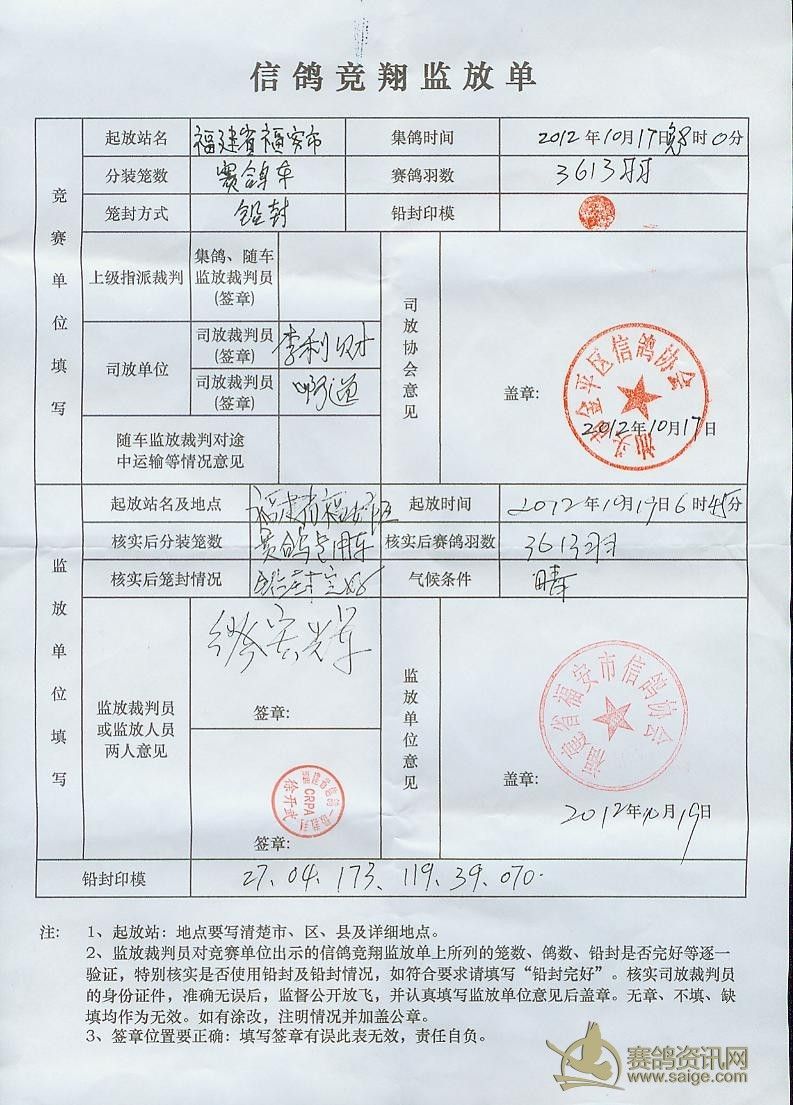 信鸽竞翔监放单
竞赛单位填写
起放站名 福建省福安市 集鸽时间 2012年10月17日晚8时0分
分装笼数 赛鸽车 赛鸽羽数 3613羽
笼封方式 铅封 铅封印模
上级指派裁判 集鸽、随车监放裁判员(签章)
司放单位 司放裁判员(签章) 李利财
司放裁判员(签章)
随车监放裁判对途中运输等情况意见
司放协会意见
汕头市金平区信鸽协会
盖章:
2012年10月17日
监放单位填写
起放站名及地点 福建省福安 起放时间 2012年10月19日6时45分
核实后分装笼数 赛鸽专用车 核实后赛鸽羽数 3613羽
核实后笼封情况 铅封完好 气候条件 晴
监放裁判员或监放人员两人意见
签章:
CRPA
徐开武
签章:
监放单位意见
福建省福安市信鸽协会
盖章:
2012年10月19日
铅封印模 27.04.173.119.39.070.
注: 1、起放站:地点要写清楚市、区、县及详细地点。
2、监放裁判员对竞赛单位出示的信鸽竞翔监放单上所列的笼数、鸽数、铅封是否完好等逐一
验证，特别核实是否使用铅封及铅封情况，如符合要求请填写“铅封完好”。核实司放裁判员
的身份证件，准确无误后，监督公开放飞，并认真填写监放单位意见后盖章。无章、不填、缺
填均作为无效。如有涂改，注明情况并加盖公章。
3、签章位置要正确:填写签章有误此表无效，责任自负。
赛鸽资讯网
www.saige.com